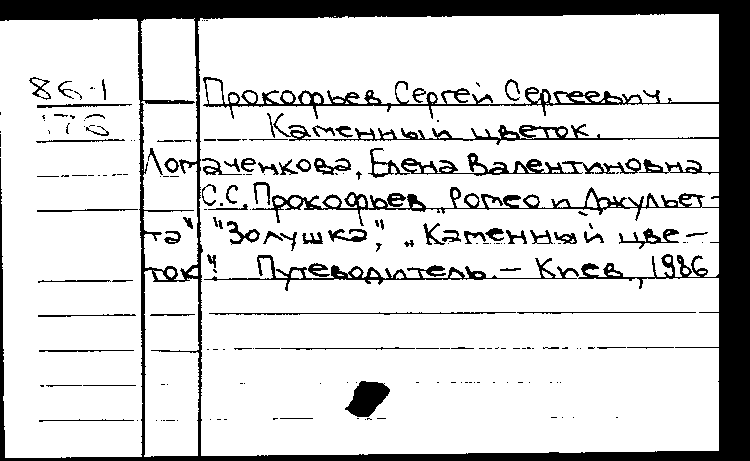 86-1
176
Прокофьев, Сергей Сергеевич.
Каменный цветок.
Ломаченкова, Елена Валентиновна
С.С. Прокофьев „Ромео и Джульет-
та" "Золушка", „Каменный цве-
ток". Путеводитель. – Киев., 1986.